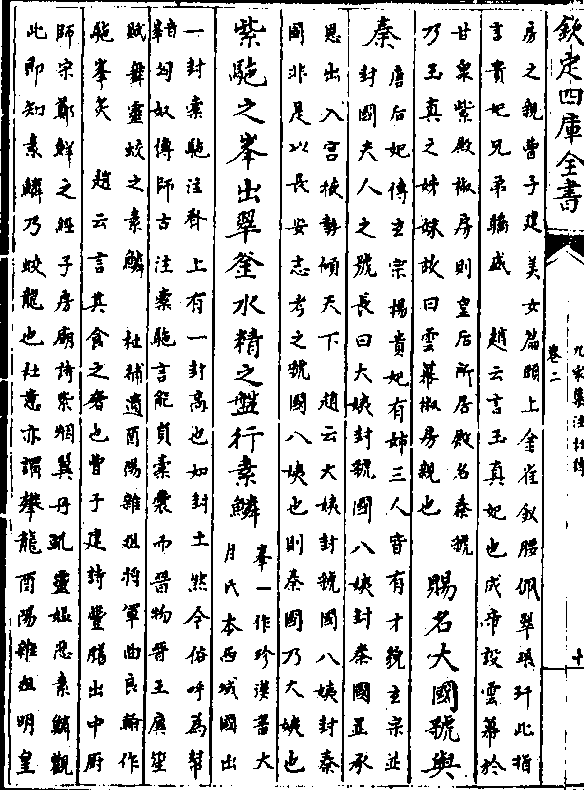 欽定四庫全書
九家集注杜詩
卷二
十
房之親曹子建美女篇頭上金雀釵腰佩翠琅玕此指
言貴妃兄弟驕盛　趙云言玉真妃也成帝設雲幕於
甘泉紫殿椒房則皇后所居殿名秦虢
乃玉真之姊妹故曰雲幕椒房親也　賜名大國虢與
秦　唐后妃傳玄宗楊貴妃有姊三人皆有才貌玄宗並
封國夫人之號長曰大姨封虢國八姨封秦國並承
恩出入宫掖勢傾天下　趙云大姨封虢國八姨封秦
國非是以長安志考之虢國八姨也則秦國乃大姨也
紫駞之峯出翠釜水精之盤行素鱗　峯一作珍漢書大
月氏本西域國出
一封橐駞注脊上有一封高也如封土然今俗呼為幇
音匈奴傳師古注橐駞言能負橐囊而䭾物晉王廙笙
賦舞靈蛟之素鱗　杜補遺酉陽雜俎將軍曲良翰作
駞峯炙　趙云言其食之奢也曹子建詩豐膳出中厨
師宗鄭鮮之經子房廟詩紫烟翼丹虬靈媪悲素鱗觀
此即知素鱗乃蛟龍也杜意亦謂攀龍酉陽雜俎明皇